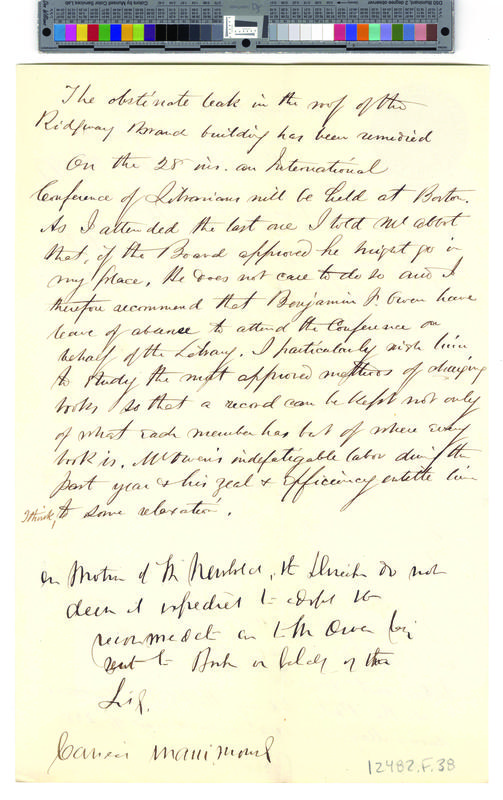 The obstinate leak in the roof of the
Ridgway Branch building has been remedied
On the 28 ins. an International
Conference of Librarians will be held at Boston.
As I attended the last one I told Mr Abbot
that, if the Board approved he might go in
my place. He does not care to do so and I
therefore recommend that Benjamin F. Owen have
leave of absence to attend the Conference on
behalf of the Library. I particularly wish him
to study the most approved methods of charging
books so that a record can be kept not only
of what each member has but of where every
book is. Mr Owen's indefatigable labor during the
past year & his zeal & efficiency entitle him
I think, to some relaxation.
On Motion of Mr Newbold, the Directors do not
deem it expedient to adopt the
recommendation as to Mr Owen being
sent to Boston on behalf of the
Liby.
Carried unanimously
12482.F.38